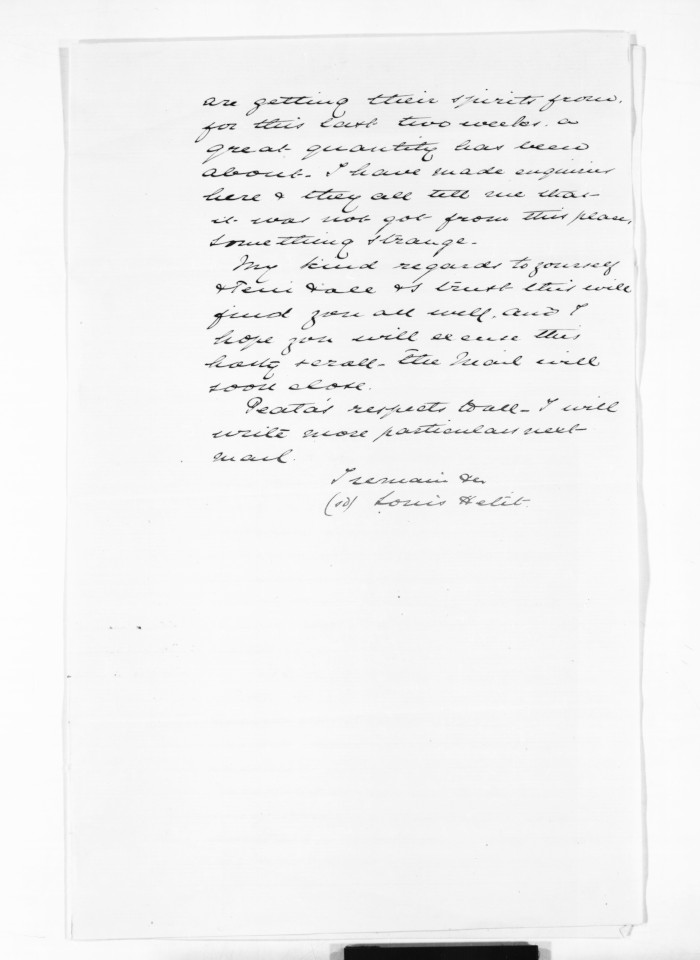 are getting their spirits from.
for this last two weeks. a
great quantity has been
about. I have made enquiries
here & they all tell me that
it was not got from this place,
something strange.
My kind regards to yourself
& Teni & all & I trust this will
find you all well, and I
hope you will excuse this
hasty scrall. The Mail will
soon close.
Peata's respects to all. I will
write more particulars next
mail.
I remain &c
(sd) Louis Hetit.